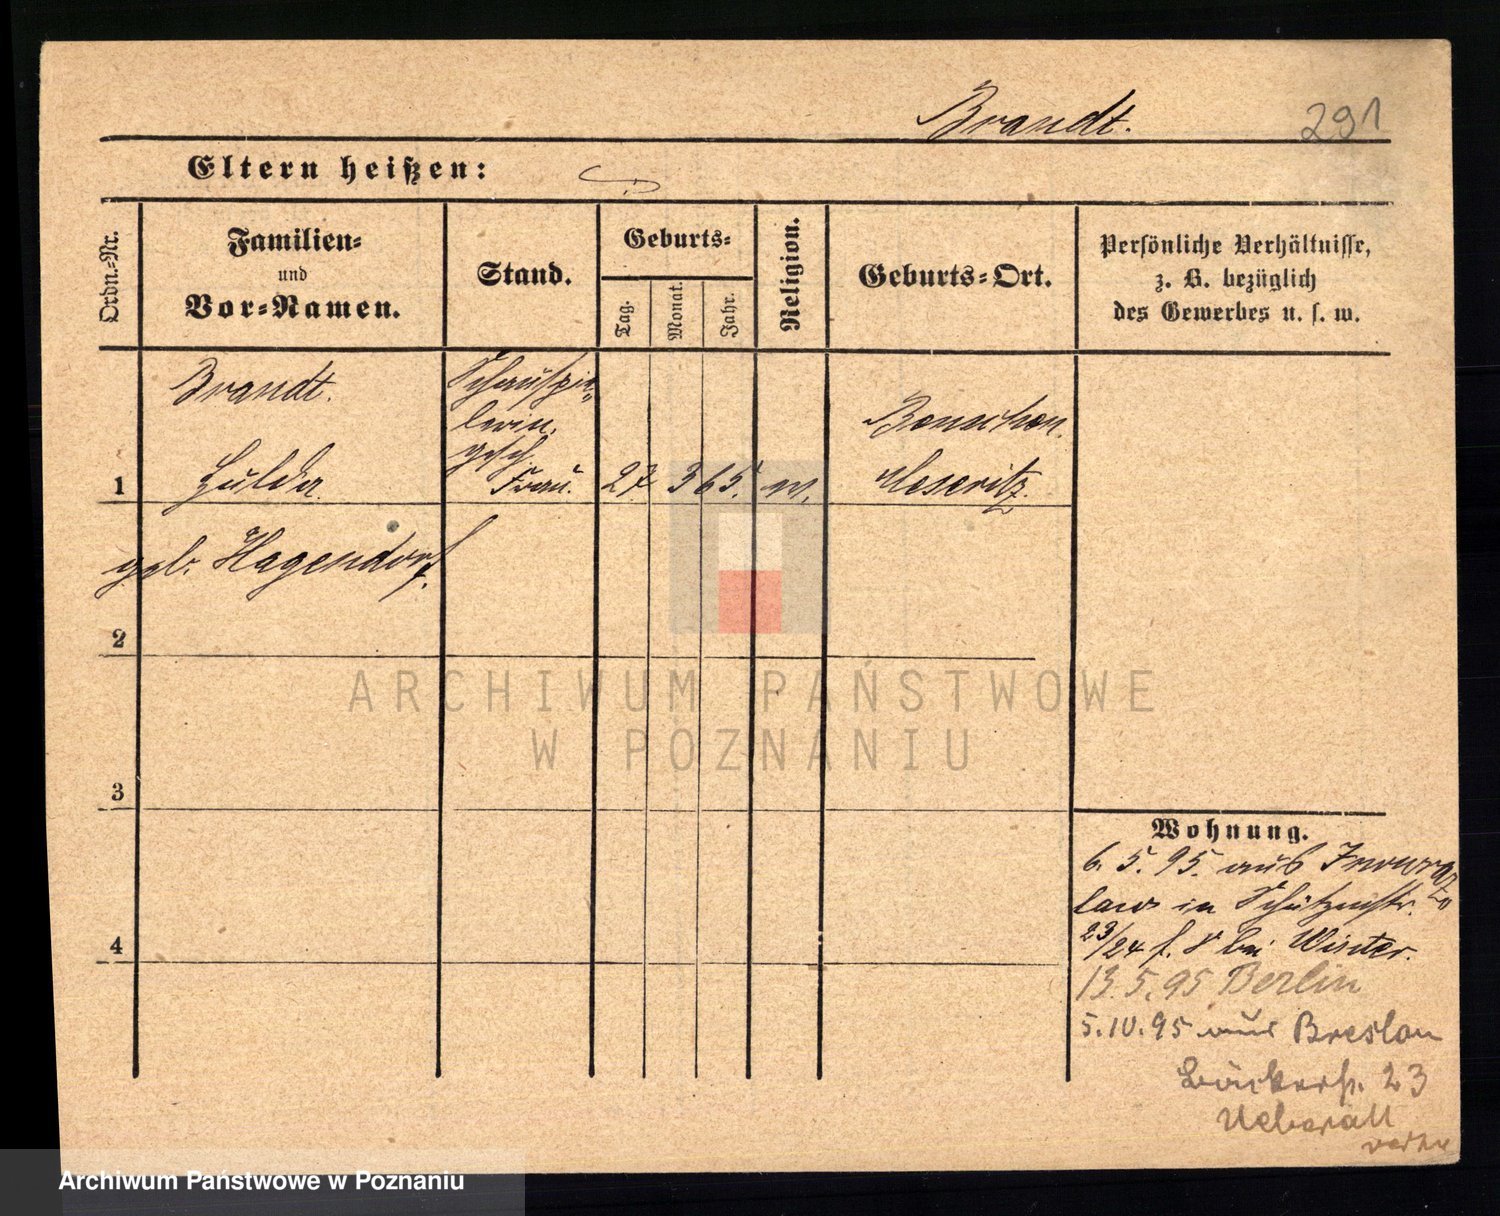 Brandt. 291
Eltern heißen:
Ordn.=Nr.
Familien=
und
Vor=Namen.
Stand.
Geburts=
Tag.
Monat.
Jahr.
Religion.
Geburts=Ort.
Persönliche Verhältnisse,
z. B. bezüglich
des Gewerbes u. s. w.
Brandt.
Hulda
geb. Hagendorf.
Schauspie=
lerin.
gesch.
Frau.
27 3 65.
Meseritz.
1
2
3
4
Wohnung.
6. 5. 95. aus Inowraz=
law in Schützenstr.
23/24 bei Winter.
13. 5. 95 Berlin
5. 10. 95 aus Breslau
Bäckerstr. 23
Ueberall
ARCHIWUM PAŃSTWOWE
W POZNANIU
Archiwum Państwowe w Poznaniu